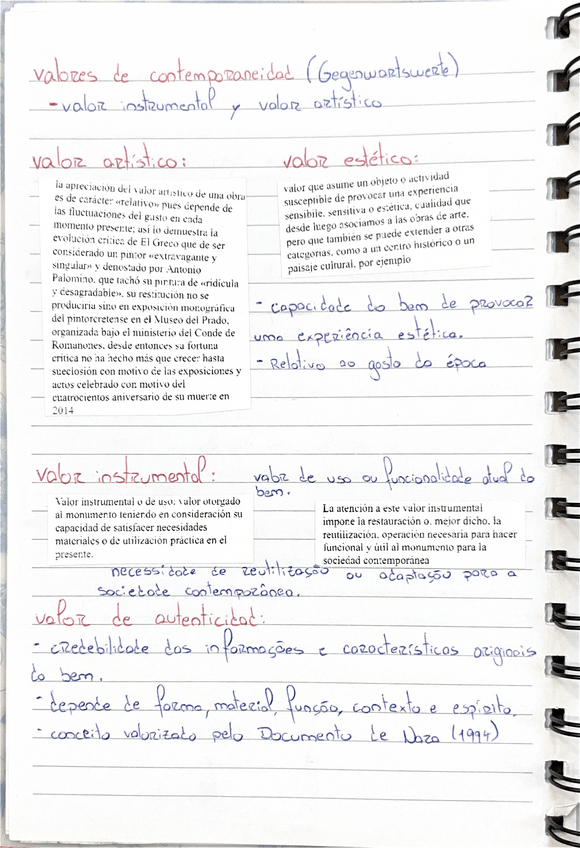 valores de contemporaneidad (Gegenwartswerte)
- valor instrumental y valor artístico
valor artístico:
la apreciación del valor artístico de una obra
es de carácter «relativo» pues depende de
las fluctuaciones del gusto en cada
momento presente; así lo demuestra la
evolución crítica de El Greco que de ser
considerado un pintor «extravagante y
singular» y denostado por Antonio
Palomino, que tachó su pintura de «ridícula
y desagradable», su restitución no se
produciría sino en exposición monográfica
del pintorcretense en el Museo del Prado,
organizada bajo el ministerio del Conde de
Romanones, desde entonces su fortuna
crítica no ha hecho más que crecer hasta
sueclosión con motivo de las exposiciones y
actos celebrado con motivo del
cuatrocientos aniversario de su muerte en
2014
valor estético:
valor que asume un objeto o actividad
susceptible de provocar una experiencia
sensible, sensitiva o estética, cualidad que
desde luego asociamos a las obras de arte,
pero que también se puede extender a otras
categorías, como a un centro histórico o un
paisaje cultural, por ejemplo
- capacidade do bem de provocar
uma experiência estética.
- Relativo ao gosto da época
valor instrumental:
valor de uso ou funcionalidade atual do
bem.
Valor instrumental o de uso: valor otorgado
al monumento teniendo en consideración su
capacidad de satisfacer necesidades
materiales o de utilización práctica en el
presente.
La atención a este valor instrumental
impone la restauración o, mejor dicho, la
reutilización, operación necesaria para hacer
funcional y útil al monumento para la
sociedad contemporánea
necessidade de reutilização ou adaptação para a
sociedade contemporânea.
valor de autenticidad:
- credebilidade das informações e características originais
do bem.
- depende de forma, material, função, contexto e espírito.
- conceito valorizado pelo Documento de Nara (1994)